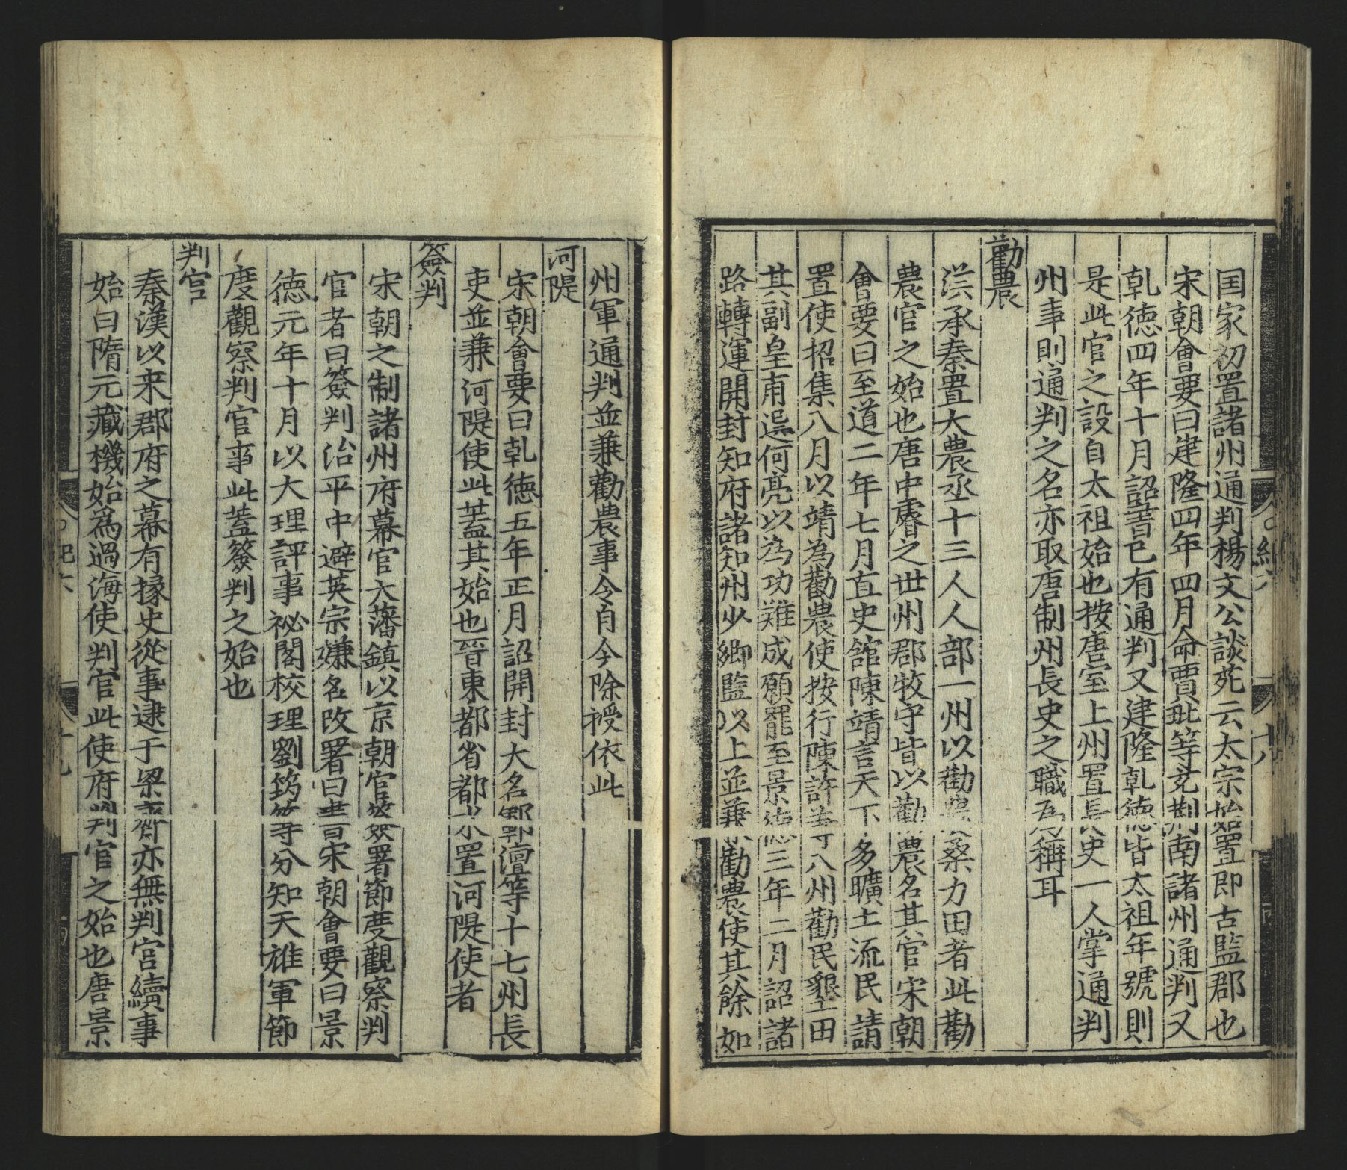 国家初置諸州通判楊文公談苑云太宗始置即古監郡也
宋朝會要曰建隆四年四月命賈玭等充荆南諸州通判又
乾徳四年十月詔書已有通判又建隆乾徳皆太祖年號則
是此官之設自太祖始也按唐室上州置長史一人掌通判
州事則通判之名亦取唐制州長史之職為稱耳
勸農
漢承秦置大農丞十三人人部一州以勸農桑力田者此勸
農官之始也唐中睿之世州郡牧守皆以勸農名其官宋朝
會要曰至道二年七月直史館陳靖言天下多曠土流民請
置使招集八月以靖為勸農使按行陳許等八州勸民墾田
其副皇甫選何亮以為功難成願罷至景徳三年二月詔諸
路轉運開封知府諸知州少卿監以上並兼勸農使其餘如
州軍通判並兼勸農事今自今除授依此
河隄
宋朝會要曰乾徳五年正月詔開封大名鄆澶等十七州長
吏並兼河隄使此蓋其始也晉東都省都水置河隄使者
簽判
宋朝之制諸州府幕官大藩鎮以京朝官簽署節度觀察判
官者曰簽判治平中避英宗嫌名改署曰書宋朝會要曰景
徳元年十月以大理評事祕閣校理劉筠等分知天雄軍節
度觀察判官事此蓋簽判之始也
判官
秦漢以來郡府之幕有掾史從事逮于梁齊亦無判官續事
始曰隋元藏機始為過海使判官此使府判官之始也唐景